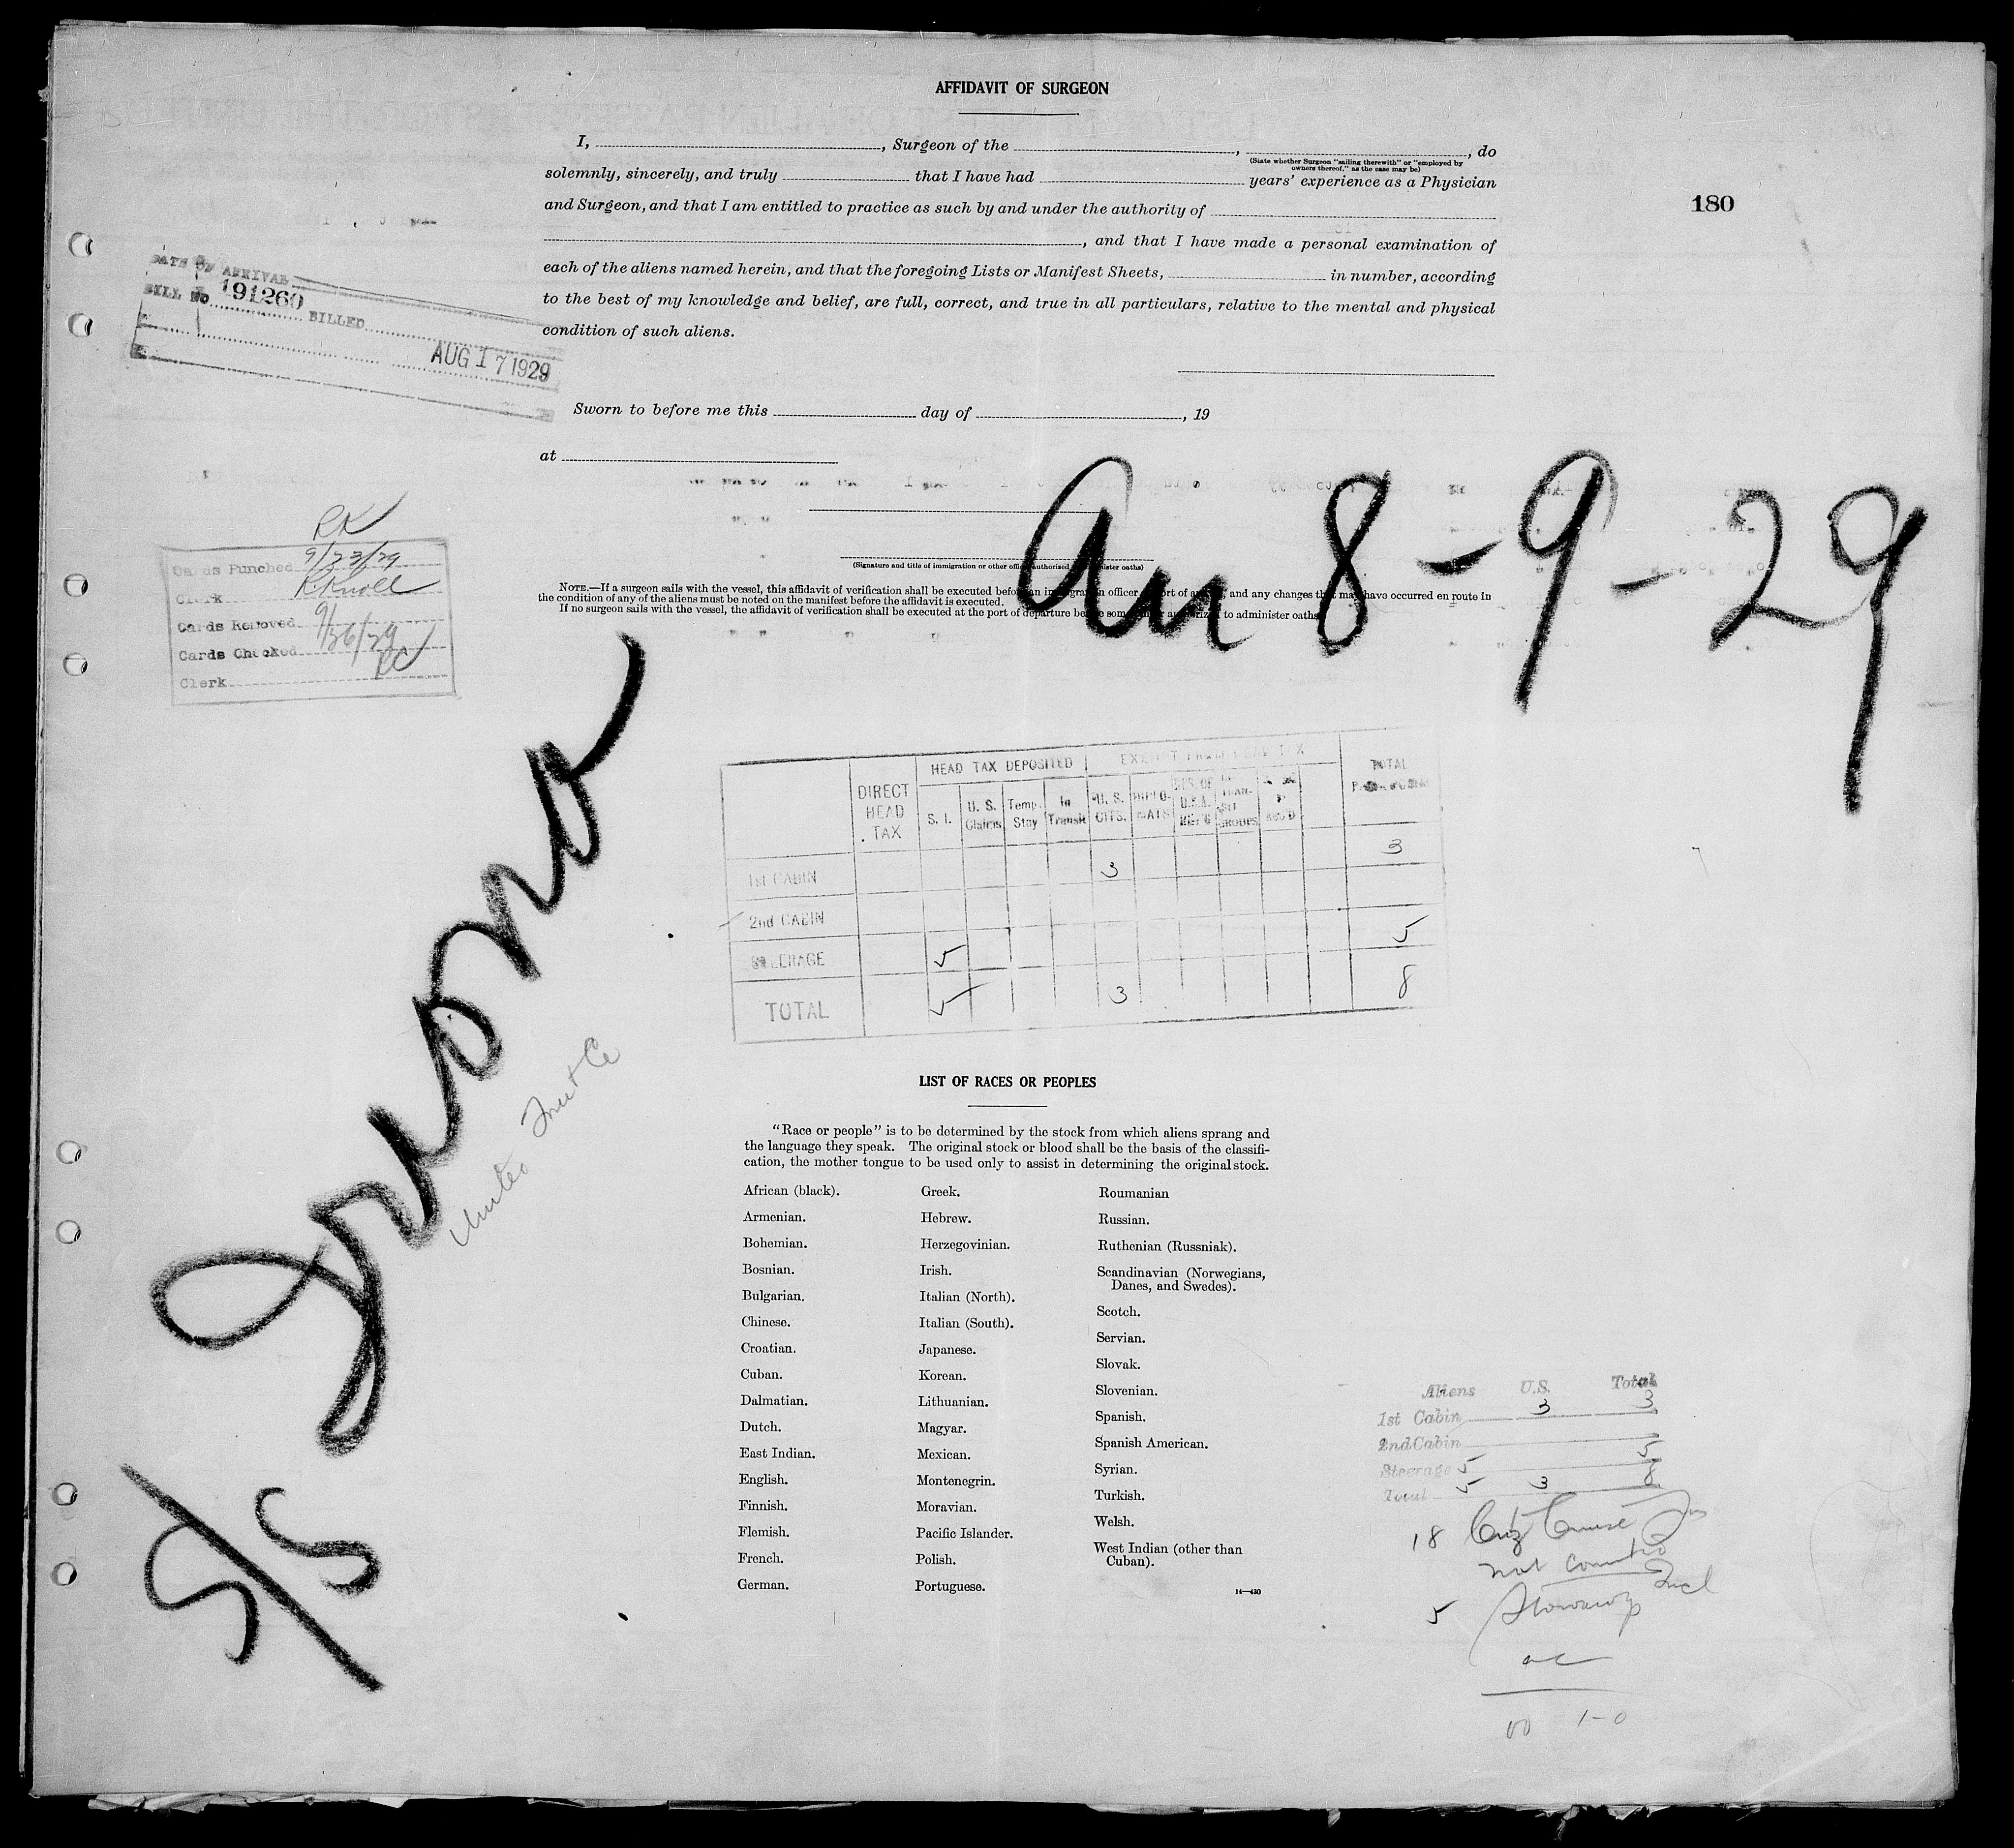 AFFIDAVIT OF SURGEON
I, , Surgeon of the , , do
(State whether Surgeon "sailing therewith" or "employed by
owners thereof," as the case may be)
solemnly, sincerely, and truly that I have had years' experience as a Physician
and Surgeon, and that I am entitled to practice as such by and under the authority of
180
, and that I have made a personal examination of
each of the aliens named herein, and that the foregoing Lists or Manifest Sheets, in number, according
to the best of my knowledge and belief, are full, correct, and true in all particulars, relative to the mental and physical
condition of such aliens.
DATE OF ARRIVAL
BILL NO. 191260 BILLED
AUG 17 1929
Sworn to before me this day of , 19
at
(Signature and title of immigration or other officer authorized to administer oaths)
NOTE.—If a surgeon sails with the vessel, this affidavit of verification shall be executed before an immigration officer port of arrival, and any changes that may have occurred en route in
the condition of any of the aliens must be noted on the manifest before the affidavit is executed.
If no surgeon sails with the vessel, the affidavit of verification shall be executed at the port of departure before some officer authorized to administer oaths.
Arr 8-9-29
RK
Cards Punched 9/23/29
Clerk
Cards Removed
Cards Checked 9/26/29
Clerk RC
S/S Iriona
United Fruit Co
HEAD TAX DEPOSITED EXEMPT FROM HEAD TAX TOTAL
DIRECT HEAD TAX S. I. U. S. Claims Temp. Stay In Transit U. S. CITS. DIPLO-MATS
1st CABIN 3 3
2nd CABIN
STEERAGE 5 5
TOTAL 5 3 8
LIST OF RACES OR PEOPLES
"Race or people" is to be determined by the stock from which aliens sprang and
the language they speak. The original stock or blood shall be the basis of the classifi-
cation, the mother tongue to be used only to assist in determining the original stock.
African (black).
Armenian.
Bohemian.
Bosnian.
Bulgarian.
Chinese.
Croatian.
Cuban.
Dalmatian.
Dutch.
East Indian.
English.
Finnish.
Flemish.
French.
German.
Greek.
Hebrew.
Herzegovinian.
Irish.
Italian (North).
Italian (South).
Japanese.
Korean.
Lithuanian.
Magyar.
Mexican.
Montenegrin.
Moravian.
Pacific Islander.
Polish.
Portuguese.
Roumanian
Russian.
Ruthenian (Russniak).
Scandinavian (Norwegians,
Danes, and Swedes).
Scotch.
Servian.
Slovak.
Slovenian.
Spanish.
Spanish American.
Syrian.
Turkish.
Welsh.
West Indian (other than
Cuban).
14—430
Aliens U.S. Total
1st Cabin 3 3
2nd Cabin
Steerage 5 5
Total 5 3 8
18 Citz Cruise
not counted
5 Stowaways Incl
1-0